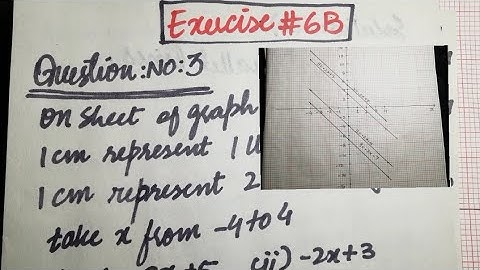 Exercise #6B
Question:NO:3
on sheet of graph
1cm represent 1
1cm represent 2
take x from -4 to 4
ii) -2x+3